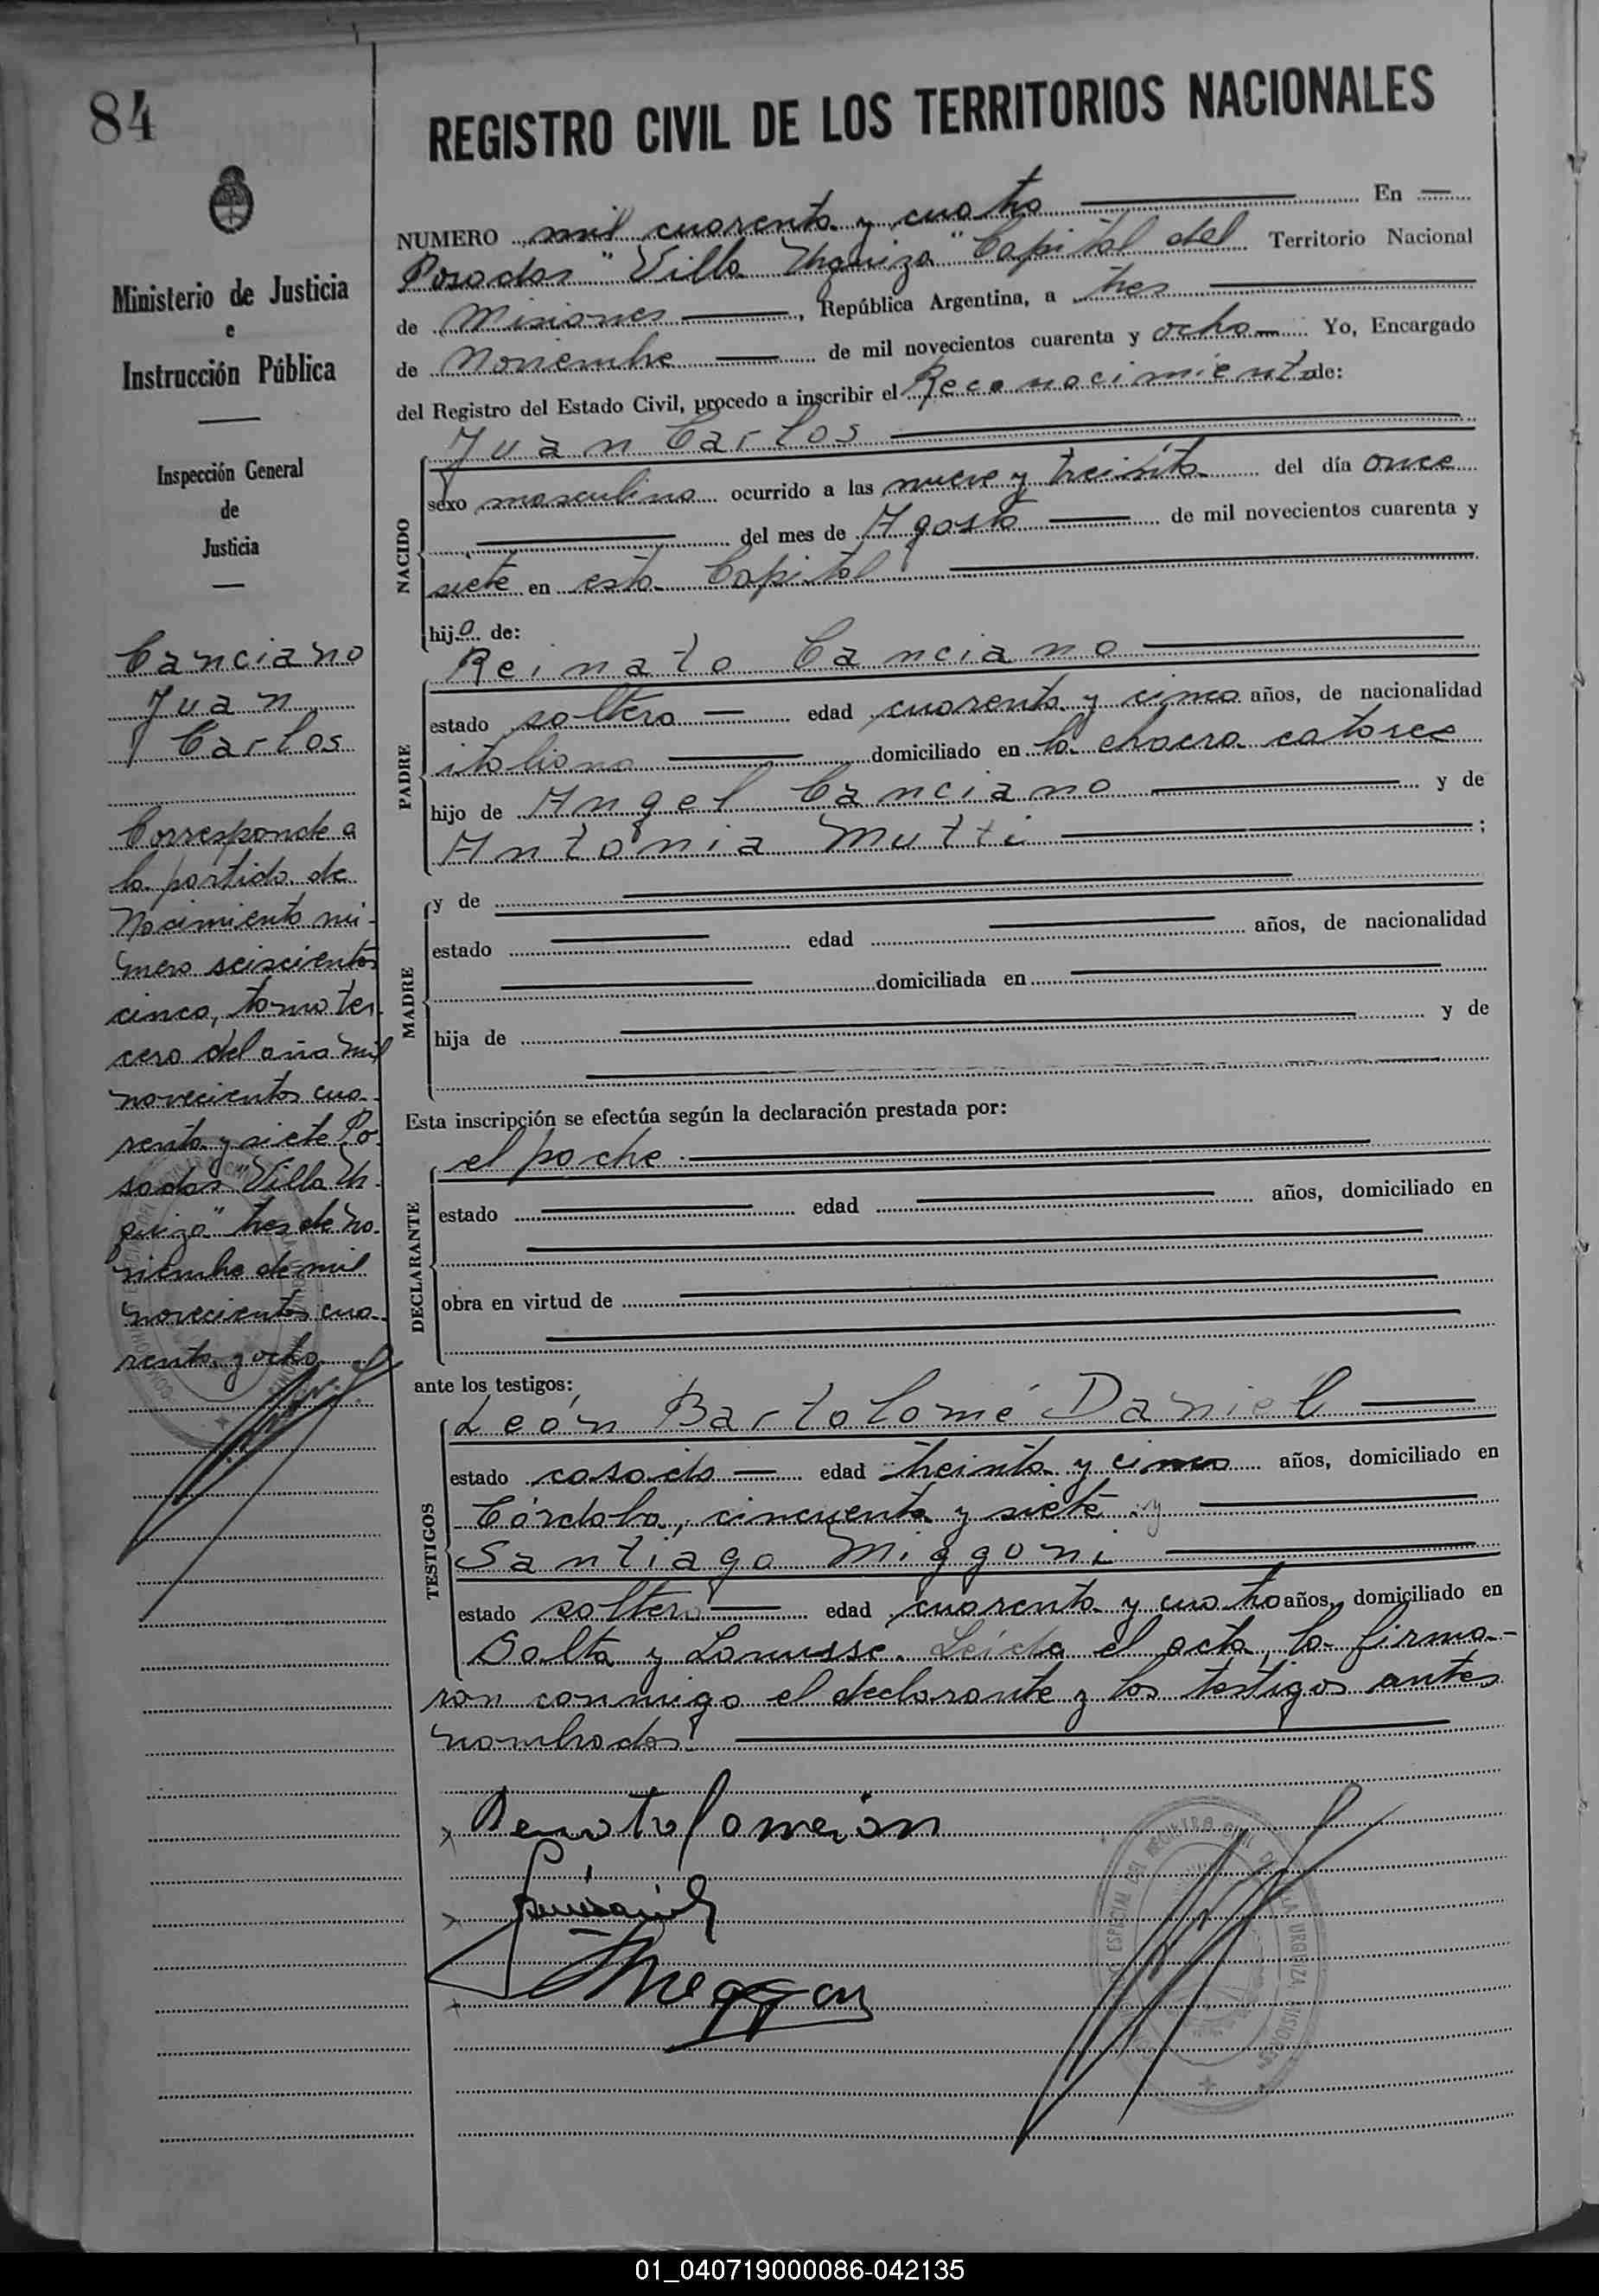 84
REGISTRO CIVIL DE LOS TERRITORIOS NACIONALES
Ministerio de Justicia
e
Instrucción Pública
Inspección General
de
Justicia
Canciano
Juan
Carlos
Corresponde a
la partida de
Nacimiento nú-
mero seiscientos
cinco, tomo ter-
cero del año mil
novecientos cua-
renta y siete Po-
sadas "Villa Ur-
quiza" tres de no-
viembre de mil
novecientos cua-
renta y ocho
NUMERO mil cuarenta y cuatro En
Posadas "Villa Urquiza" Capital del Territorio Nacional
de Misiones, República Argentina, a tres
de Noviembre de mil novecientos cuarenta y ocho Yo, Encargado
del Registro del Estado Civil, procedo a inscribir el Reconocimiento de:
NACIDO
Juan Carlos
sexo masculino ocurrido a las nueve y treinta del día once
del mes de Agosto de mil novecientos cuarenta y
siete en esta Capital
hijo de:
PADRE
Reinato Canciano
estado soltero edad cuarenta y cinco años, de nacionalidad
italiana domiciliado en la chacra catorce
hijo de Angel Canciano y de
Antonia Mutti;
MADRE
y de
estado edad años, de nacionalidad
domiciliada en
hija de y de
Esta inscripción se efectúa según la declaración prestada por:
DECLARANTE
el padre
estado edad años, domiciliado en
obra en virtud de
ante los testigos:
TESTIGOS
León Bartolomé Daniel
estado casado edad treinta y cinco años, domiciliado en
Córdoba, cincuenta y siete y
Santiago Miggoni
estado soltero edad cuarenta y cuatro años, domiciliado en
Salta y Lanusse. Leída el acta, la firma-
ron conmigo el declarante y los testigos antes
nombrados.
01_040719000086-042135